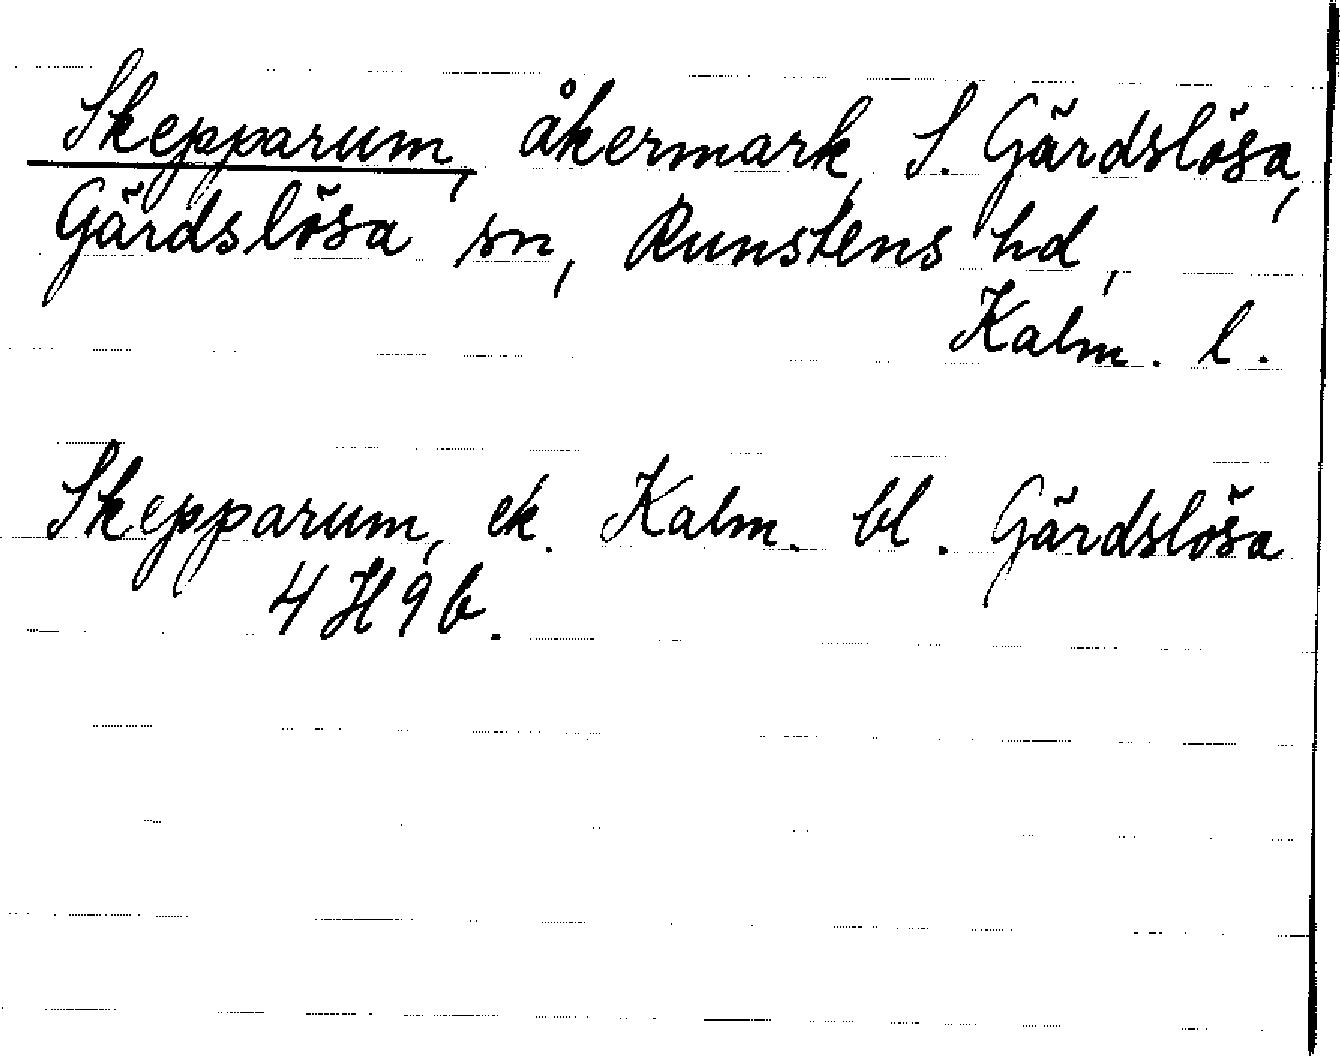 Skepparum, åkermark, S. Gärdslösa,
Gärdslösa sn, Runstens hd,
Kalm. l.
Skepparum, ek. Kalm. bl. Gärdslösa
4 H 9 b.